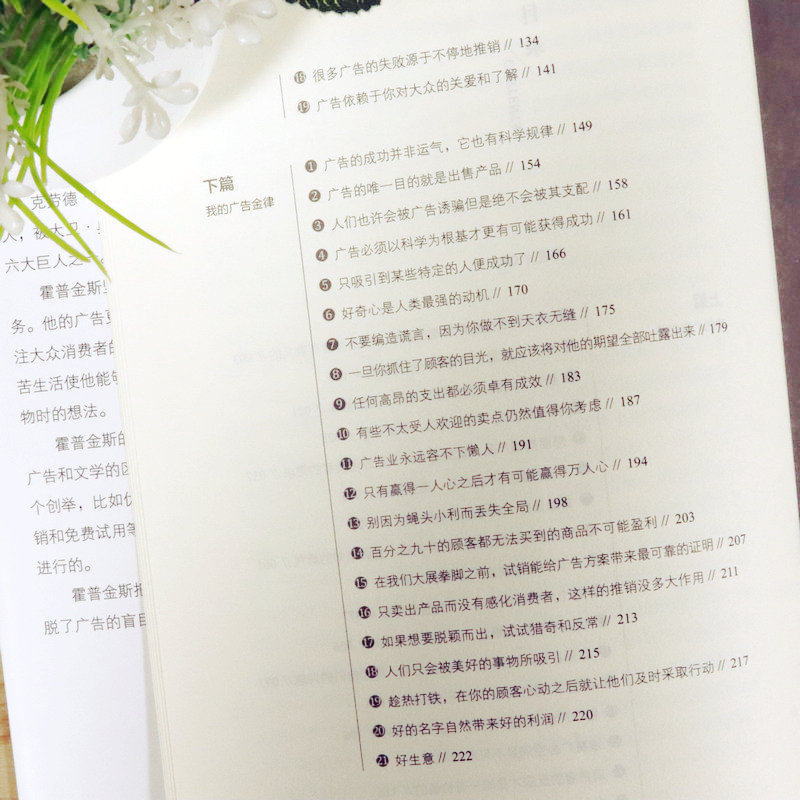 ⑱ 很多广告的失败源于不停地推销 // 134
⑲ 广告依赖于你对大众的关爱和了解 // 141
下篇
我的广告金律
① 广告的成功并非运气，它也有科学规律 // 149
② 广告的唯一目的就是出售产品 // 154
③ 人们也许会被广告诱骗但是绝不会被其支配 // 158
④ 广告必须以科学为根基才更有可能获得成功 // 161
⑤ 只吸引到某些特定的人便成功了 // 166
⑥ 好奇心是人类最强的动机 // 170
⑦ 不要编造谎言，因为你做不到天衣无缝 // 175
⑧ 一旦你抓住了顾客的目光，就应该将对他的期望全部吐露出来 // 179
⑨ 任何高昂的支出都必须卓有成效 // 183
⑩ 有些不太受人欢迎的卖点仍然值得你考虑 // 187
⑪ 广告业永远容不下懒人 // 191
⑫ 只有赢得一人心之后才有可能赢得万人心 // 194
⑬ 别因为蝇头小利而丢失全局 // 198
⑭ 百分之九十的顾客都无法买到的商品不可能盈利 // 203
⑮ 在我们大展拳脚之前，试销能给广告方案带来最可靠的证明 // 207
⑯ 只卖出产品而没有感化消费者，这样的推销没多大作用 // 211
⑰ 如果想要脱颖而出，试试猎奇和反常 // 213
⑱ 人们只会被美好的事物所吸引 // 215
⑲ 趁热打铁，在你的顾客心动之后就让他们及时采取行动 // 217
⑳ 好的名字自然带来好的利润 // 220
㉑ 好生意 // 222
克劳德
人，被大卫·
六大巨人之
霍普金斯
务。他的广告
注大众消费者的
苦生活使他能够
物时的想法。
霍普金斯的
广告和文学的区
个创举，比如优
销和免费试用等
进行的。
霍普金斯把
脱了广告的盲目